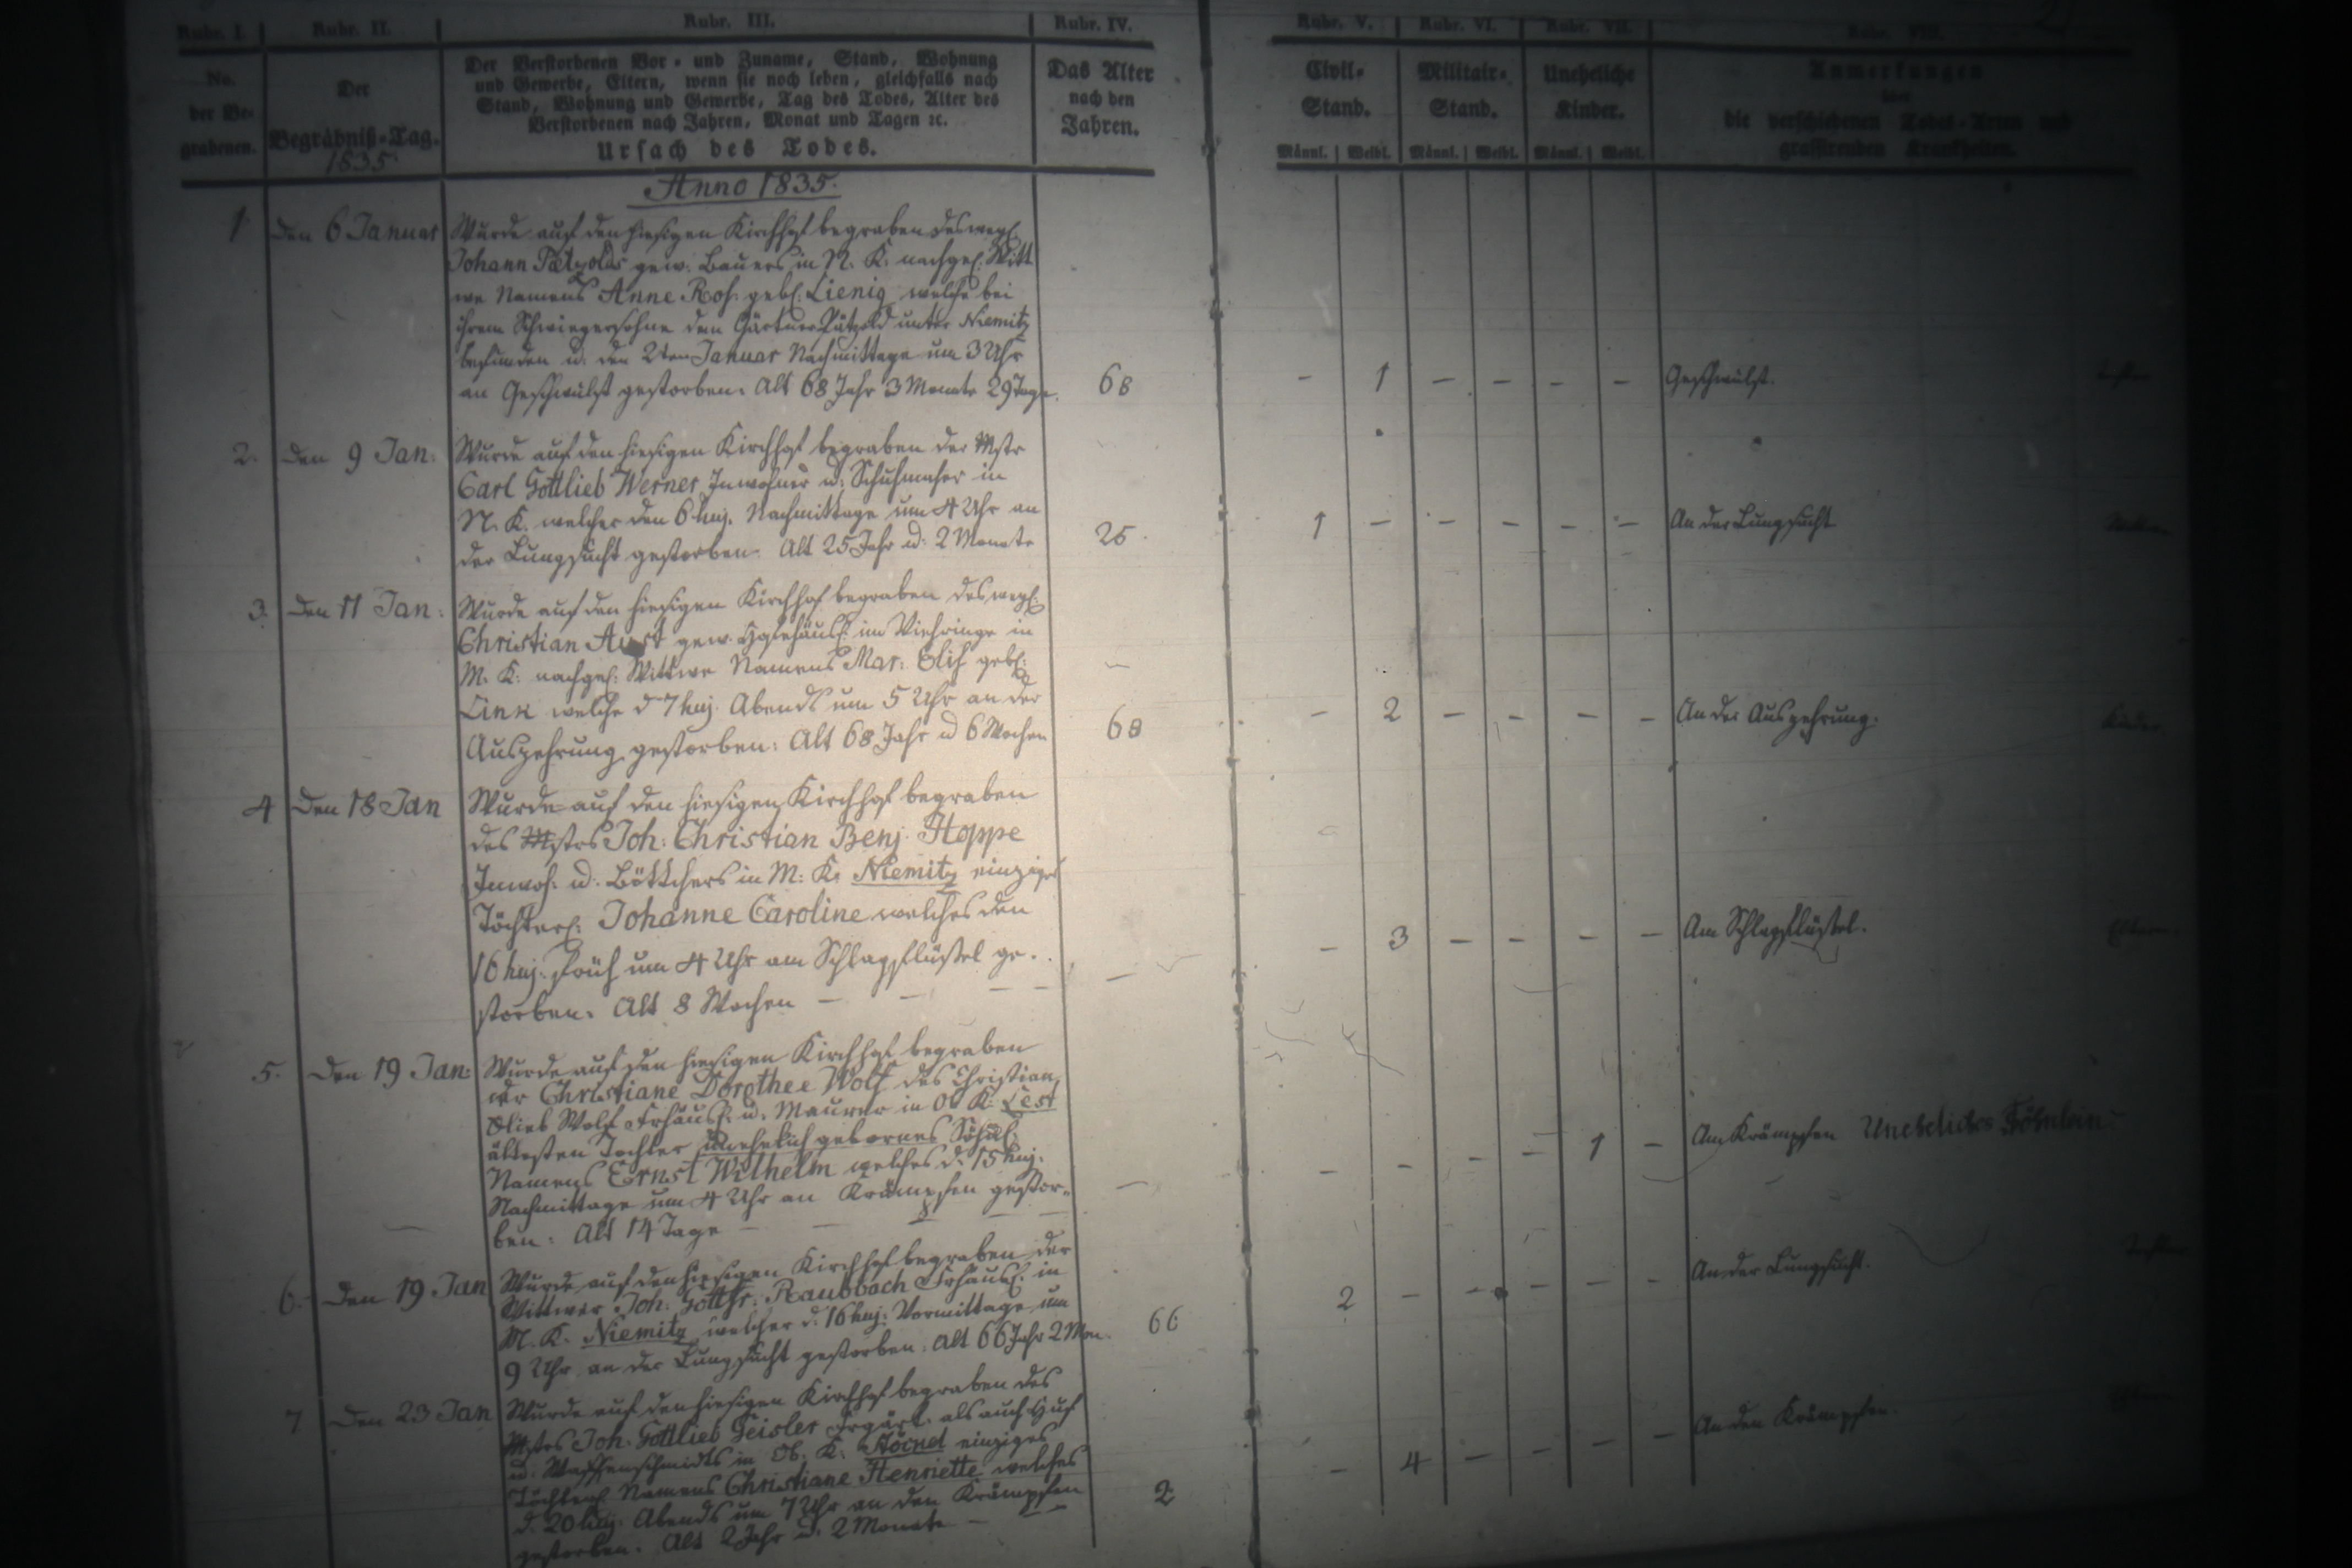 Rubr. I. Rubr. II. Rubr. III. Rubr. IV. Rubr. V. Rubr. VI. Rubr. VII. Rubr. VIII.
No. der Be- grabenen.
Der Begräbniß-Tag.
1835
Der Verstorbenen Vor- und Zuname, Stand, Wohnung
und Gewerbe, Eltern, wenn sie noch leben, gleichfalls nach
Stand, Wohnung und Gewerbe, Tag des Todes, Alter des
Verstorbenen nach Jahren, Monat und Tagen ꝛc.
Ursach des Todes.
Das Alter
nach den
Jahren.
Civil-
Stand.
Männl. Weibl.
Militair-
Stand.
Männl. Weibl.
Uneheliche
Kinder.
Männl. Weibl.
Anmerkungen
über
die verschiedenen Todes-Arten und
grassirenden Krankheiten.
Anno 1835.
1 Den 6 Januar
Wurde auf den hiesigen Kirchhof begraben des weyl.
Johann Pätzolds gew. Bauers in N. K. nachgel. Witt
we Namens Anne Ros. gebl. Lienig welche bei
ihrem Schwiegersohne dem Gärtner Pätzold unter Niemitz
befunden u. den 2ten Januar Nachmittage um 3 Uhr
an Geschwulst gestorben. Alt 68 Jahr 3 Monate 29 Tage.
68 – 1 – – – – Geschwulst.
2. Den 9 Jan:
Wurde auf den hiesigen Kirchhof begraben der Mstr
Carl Gottlieb Werner Inwohner u. Schuhmacher in
N. K. welcher den 6 huj. Nachmittage um 4 Uhr an
der Lungsucht gestorben. Alt 25 Jahr u: 2 Monate
25. 1 – – – – – An der Lungsucht
3. Den 11 Jan:
Wurde auf den hiesigen Kirchhof begraben des weyl.
Christian Aust gew. im Viehringe in
M. K: nachgel: Wittwe Namens Mar: Elis. gebl:
Link welche d 7 huj. Abends um 5 Uhr an der
Auszehrung gestorben: Alt 68 Jahr u 6 Wochen
68 – 2 – – – – An der Auszehrung.
4 Den 18 Jan
Wurde auf den hiesigen Kirchhof begraben
des Mstrs Joh: Christian Benj. Hoppe
Inwoh. u. Böttchers in M: K. Niemitz einziges
Töchterl: Johanne Caroline welches den
16 huj. Früh um 4 Uhr am Schlagflüssel ge-
storben. Alt 8 Wochen – – – –
– – 3 – – – – Am Schlagflüssel.
5. Den 19 Jan:
Wurde auf den hiesigen Kirchhof begraben
der Christiane Dorothee Wolf des Christian
Glieb Wolf Frhäusl. u. Maurer in Ob K: Lest
ältesten Tochter unehelich gebornes Söhnl.
Namens Ernst Wilhelm welches d. 15 huj.
Nachmittage um 4 Uhr an Krämpfen gestor-
ben: Alt 14 Tage – – – – –
– – – – – 1 – Am Krämpfen Uneheliches Söhnlein
6. Den 19 Jan
Wurde auf den hiesigen Kirchhof begraben der
Wittwer Joh: Gottfr: Raubbach Frhäusl. in
M. K. Niemitz welcher d. 16 huj. Vormittage um
9 Uhr an der Lungsucht gestorben: Alt 66 Jahr 2 Mon.
66 2 – – – – – An der Lungsucht.
7 Den 23 Jan
Wurde auf den hiesigen Kirchhof begraben des
Mstrs Joh: Gottlieb Geisler Frgärt. als auch Huf
u. Waffenschmidts in Ob. K: einziges
Töchterl. Namens Christiane Henriette welches
d. 20 huj. Abends um 7 Uhr an den Krämpfen
gestorben. Alt 2 Jahr u. 2 Monate – – –
2 – 4 – – – – An den Krämpfen.